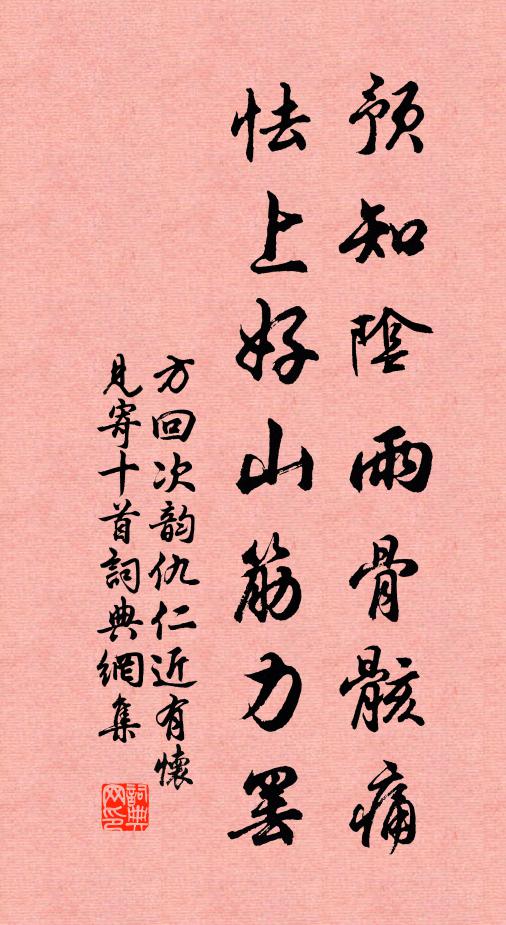 預知陰雨骨骸痛
怯上好山筋力罢
方回次韵仇仁近有懷
見寄十首詞典網集
詞典
网印